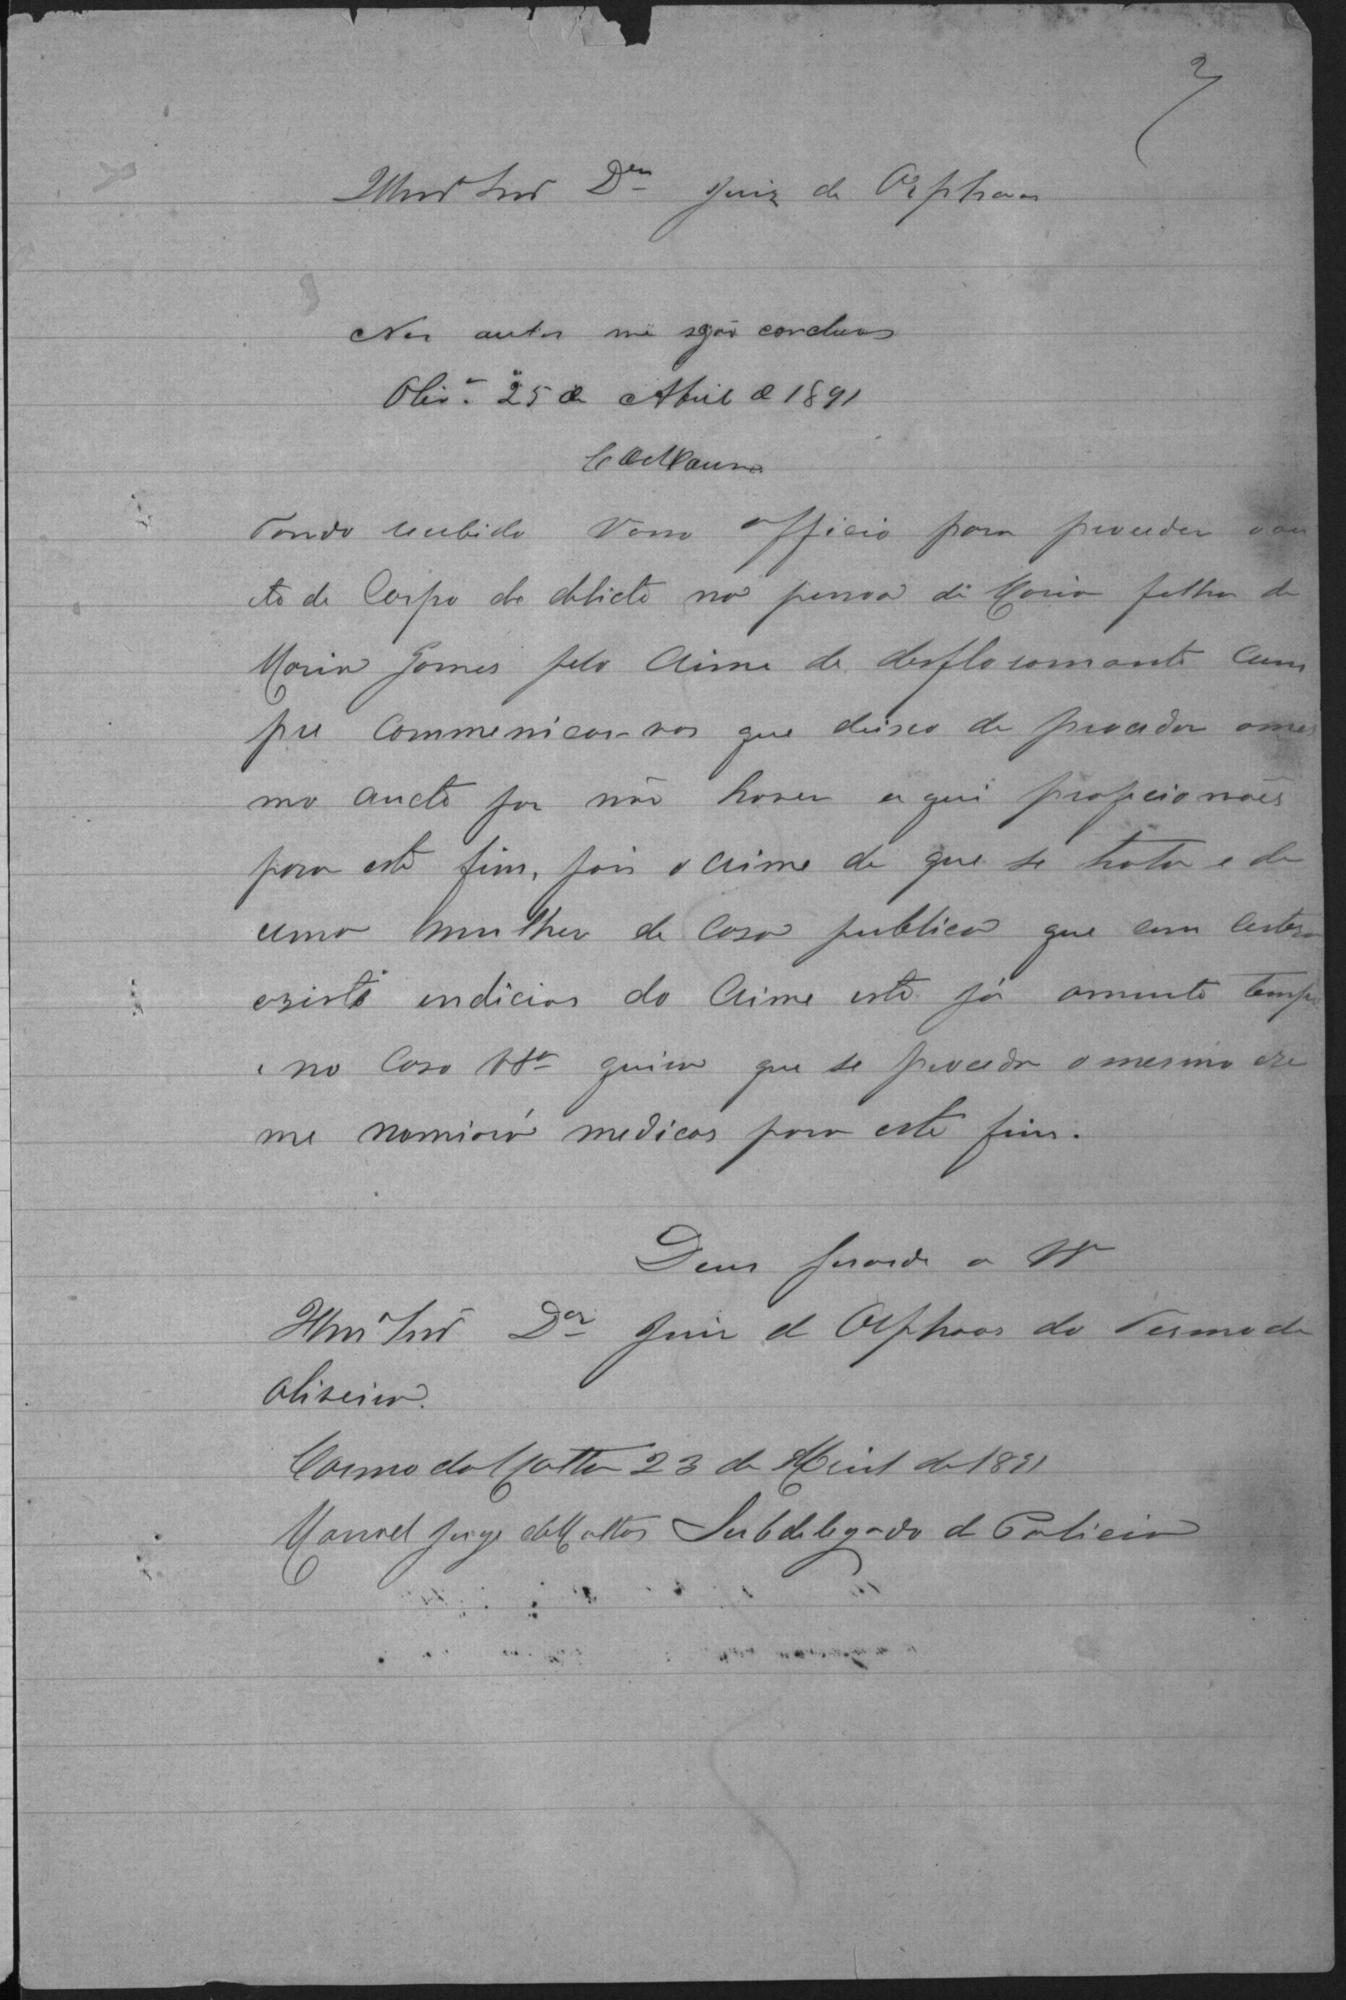 2
Illmo Snr Dr Juiz de Orphaos
Nos autos me sejão conclusos
Olivra 25 de Abril de 1891
Tendo recebido Vosso officio para proceder o au
cto de Corpo de delicto na pessoa de Maria filha de
Maria Gomes pelo Crime de desfloramento Cum
pre Commenicar-vos que deixo de proceder o mes
mo aucto por não haver aqui proficionaes
para este fim, pois o crime de que se trata e de
uma mulher de Casa publica que com certesa
existe endicios do Crime este já amuito tempo
e no Caso Va queira que se proceda o mesmo exa
me nomiará medicos para este fim.
Deus Guarde a Va
Illmo Snr Dor Juiz de Orphaos do Termo de
Oliveira.
Carmo da Matta 23 de Abril de 1891
Manoel Jorge de Mattos Subdelegado de Policia